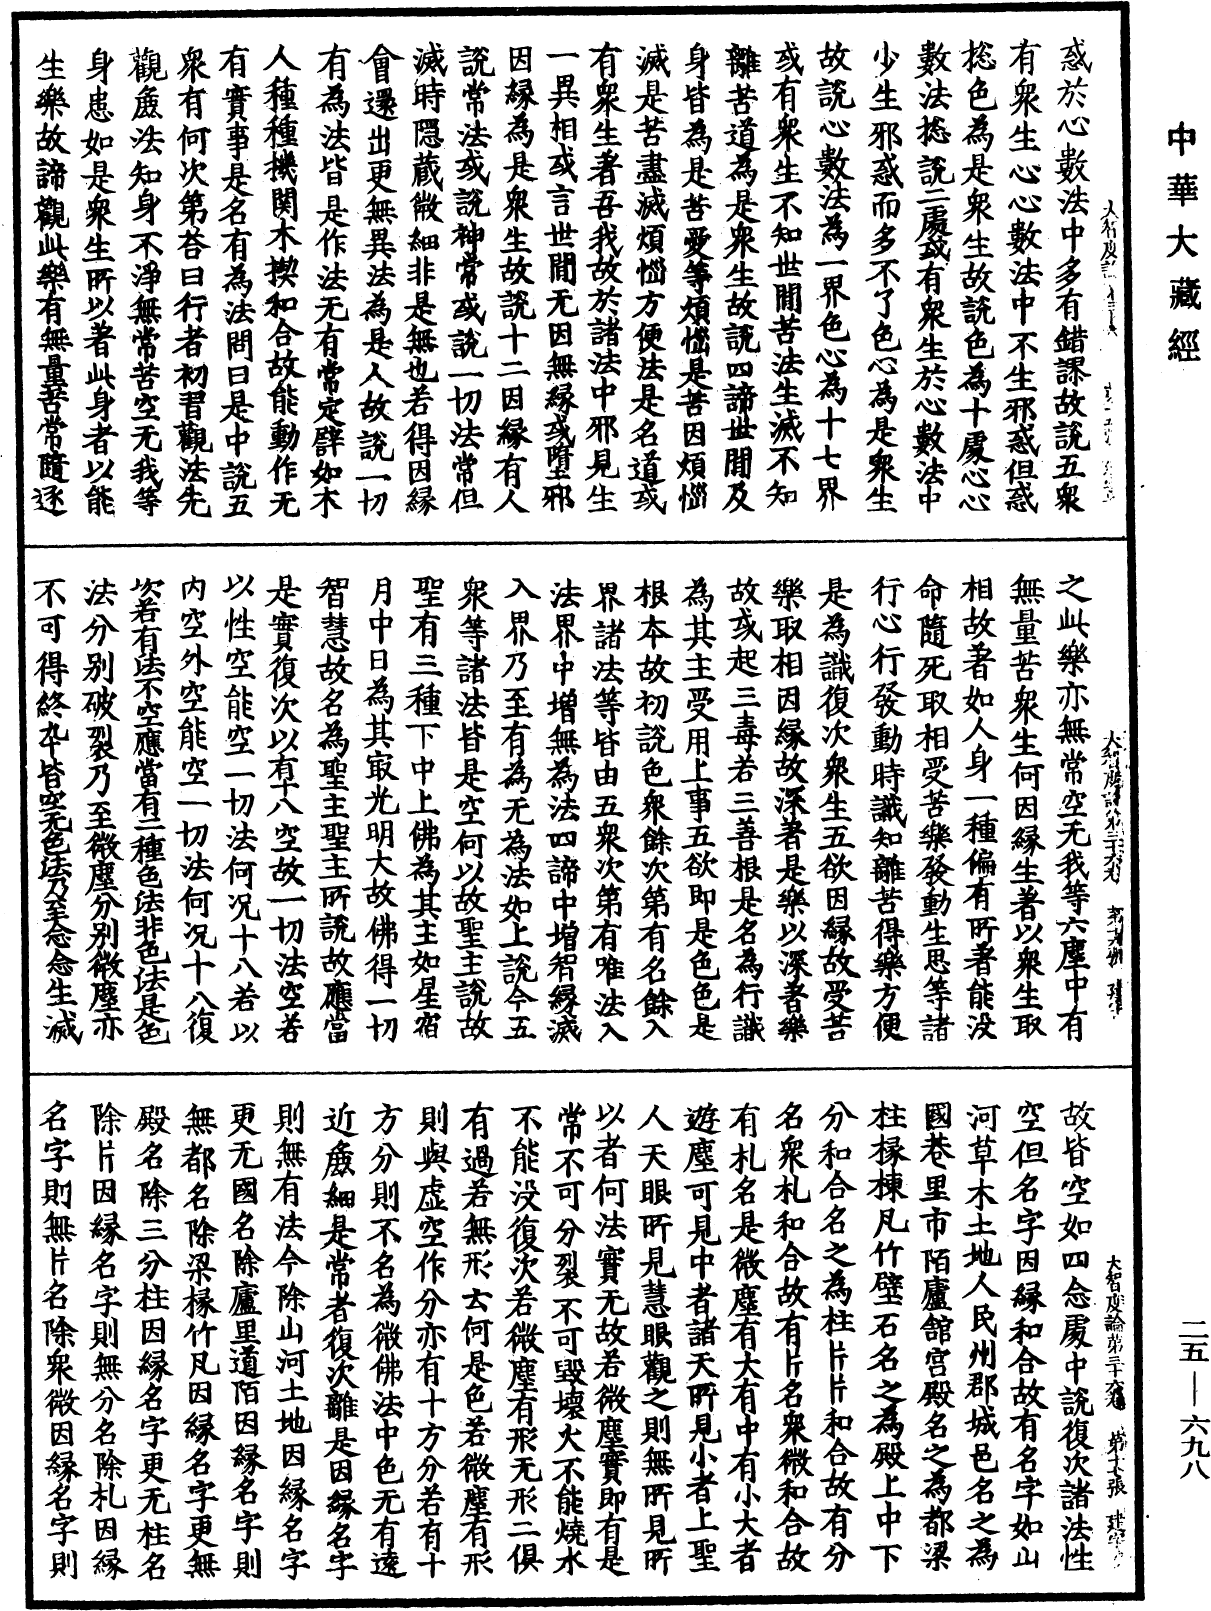 中華大藏經
惑於心數法中多有錯謬故說五衆
有衆生心心數法中不生邪惑但惑
揔色為是衆生故說色為十處心心
數法揔說二處或有衆生於心數法中
少生邪惑而多不了色心為是衆生
故說心數法為一界色心為十七界
或有衆生不知世間苦法生滅不知
離苦道為是衆生故說四諦世間及
身皆為是苦愛等煩惱是苦因煩惱
滅是苦盡滅煩惱方便法是名道或
有衆生著吾我故於諸法中邪見生
一異相或言世間无因無緣或墮邪
因緣為是衆生故說十二因緣有人
說常法或說神常或說一切法常但
滅時隱藏微細非是無也若得因緣
會還出更無異法為是人故說一切
有為法皆是作法无有常定譬如木
人種種機関木揳和合故能動作无
有實事是名有為法問曰是中說五
衆有何次第荅曰行者初習觀法先
觀麁法知身不淨無常苦空无我等
身患如是衆生所以著此身者以能
生樂故諦觀此樂有無量苦常隨逐
之此樂亦無常空无我等六塵中有
無量苦衆生何因緣生著以衆生取
相故著如人身一種偏有所著能没
命隨死取相受苦樂發動生思等諸
行心行發動時識知離苦得樂方便
是為識復次衆生五欲因緣故受苦
樂取相因緣故深著是樂以深著樂
故或起三毒若三善根是名為行識
為其主受用上事五欲即是色色是
根本故初說色衆餘次第有名餘入
界諸法等皆由五衆次第有唯法入
法界中增無為法四諦中增智緣滅
入界乃至有為无為法如上說今五
衆等諸法皆是空何以故聖主說故
聖有三種下中上佛為其主如星宿
月中日為其㝡光明大故佛得一切
智慧故名為聖主聖主所說故應當
是實復次以有十八空故一切法空若
以性空能空一切法何况十八若以
内空外空能空一切法何况十八復
次若有法不空應當有二種色法非色法是色
法分别破裂乃至微塵分别微塵亦
不可得終卆皆空无色法乃至念念生滅
故皆空如四念處中說復次諸法性
空但名字因緣和合故有名字如山
河草木土地人民州郡城邑名之為
國巷里市陌廬舘宫殿名之為都梁
柱椽棟凡竹壁石名之為殿上中下
分和合名之為柱片片和合故有分
名衆札和合故有片名衆微和合故
有札名是微塵有大有中有小大者
遊塵可見中者諸天所見小者上聖
人天眼所見慧眼觀之則無所見所
以者何法實无故若微塵實即有是
常不可分裂不可毀壞火不能燒水
不能没復次若微塵有形无形二俱
有過若無形云何是色若微塵有形
則與虚空作分亦有十方分若有十
方分則不名為微佛法中色无有遠
近麁細是常者復次離是因緣名字
則無有法今除山河土地因緣名字
更无國名除廬里道陌因緣名字則
無都名除梁椽竹凡因緣名字更無
殿名除三分柱因緣名字更无柱名
除片因緣名字則無分名除札因緣
名字則無片名除衆微因緣名字則
大智度論第三十六卷
二五—六九八